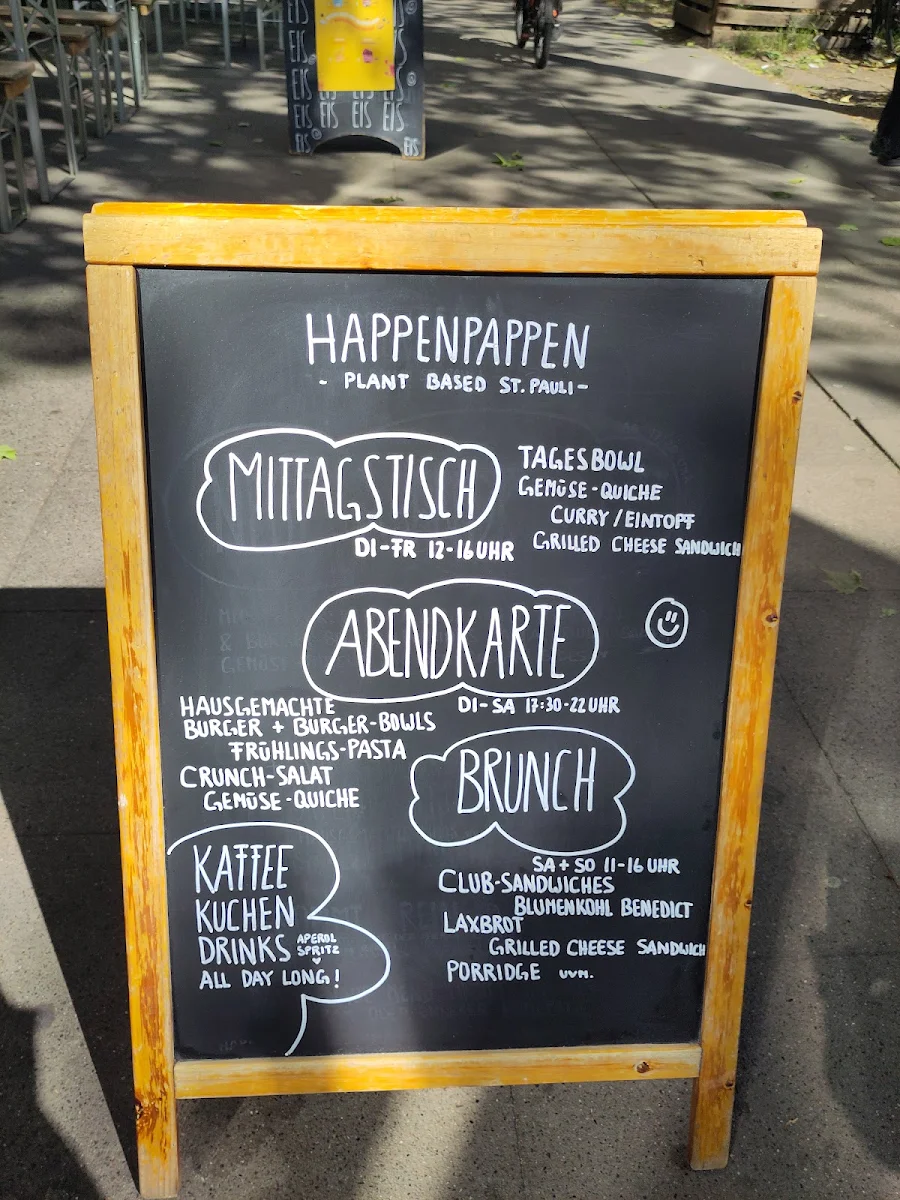 EIS EIS
EIS EIS
EIS EIS
EIS EIS
EIS EIS EIS EIS
EIS EIS EIS EIS
EIS EIS
HAPPENPAPPEN
- PLANT BASED ST. PAULI -
MITTAGSTISCH
DI-FR 12-16 UHR
TAGESBOWL
GEMÜSE-QUICHE
CURRY / EINTOPF
GRILLED CHEESE SANDWICH
ABENDKARTE
DI-SA 17:30-22 UHR
HAUSGEMACHTE
BURGER + BURGER-BOWLS
FRÜHLINGS-PASTA
CRUNCH-SALAT
GEMÜSE-QUICHE
BRUNCH
SA + SO 11-16 UHR
CLUB-SANDWICHES
BLUMENKOHL BENEDICT
LAXBROT
GRILLED CHEESE SANDWICH
PORRIDGE UVM.
KAFFEE
KUCHEN
DRINKS APEROL SPRITZ
ALL DAY LONG!